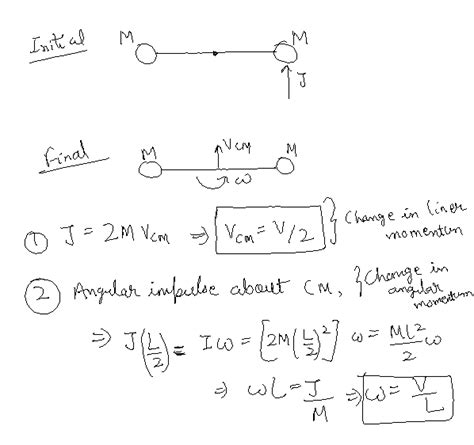 Initial M M
J
Final M VCM M
ω
① J = 2M VCM ⇒ VCM = V/2 } Change in liner momentum
② Angular impulse about CM, } Change in angular momentum
⇒ J(L/2) = Iω = [2M(L/2)²] ω = ML²/2 ω
⇒ ωL = J/M ⇒ ω = V/L